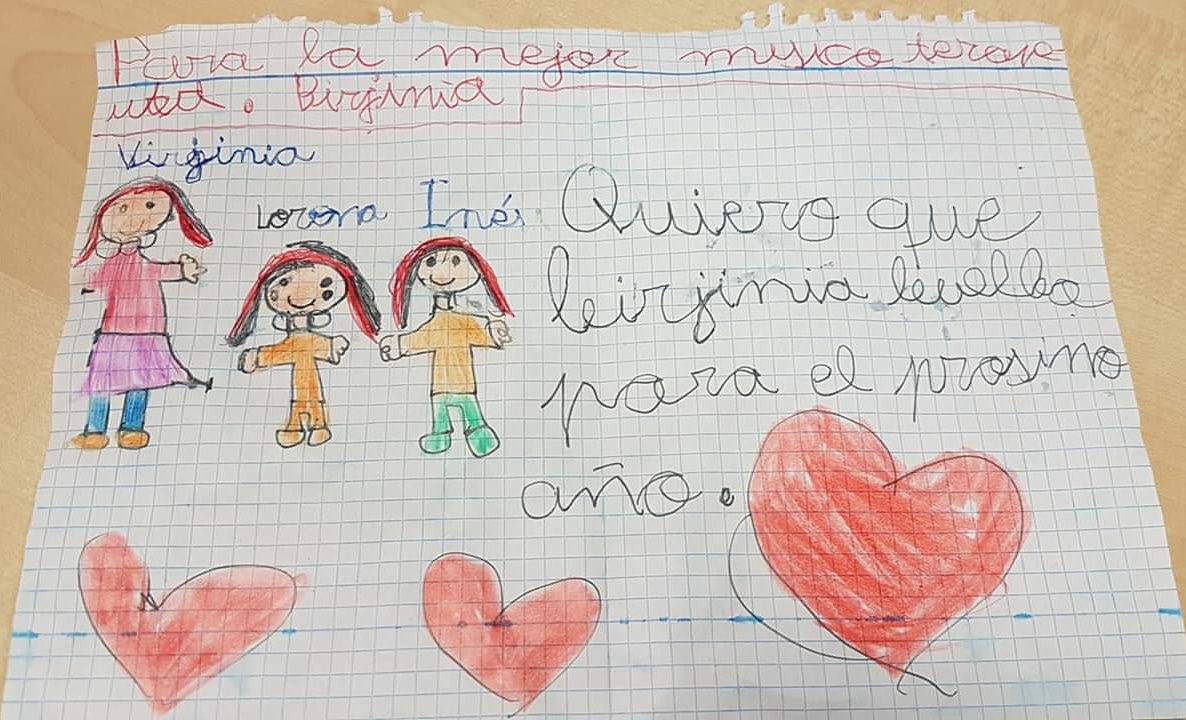 Para la mejor musico terape
uta. Birjinia
Virginia
Lorena Inés
Quiero que
birjinia vuelba
para el prosimo
año.